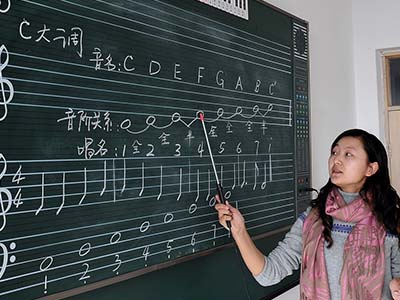 C大调
音名:C D E F G A B C
音阶关系:
全 全 半 全 全 全 半
唱名:1 2 3 4 5 6 7 i
4
4
1 2 3 4 5 6